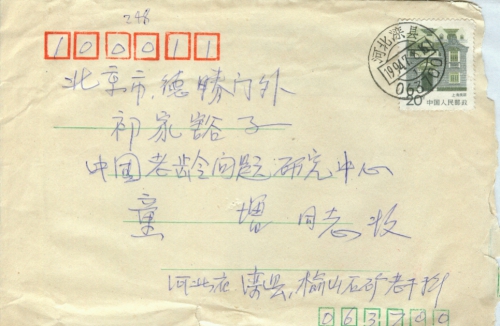 248
100011
北京市德胜门外
祁家豁子
中国老龄问题研究中心
童 增 同志收
河北省滦县榆山石矿老干部
063700
河北滦县
20
中国人民邮政